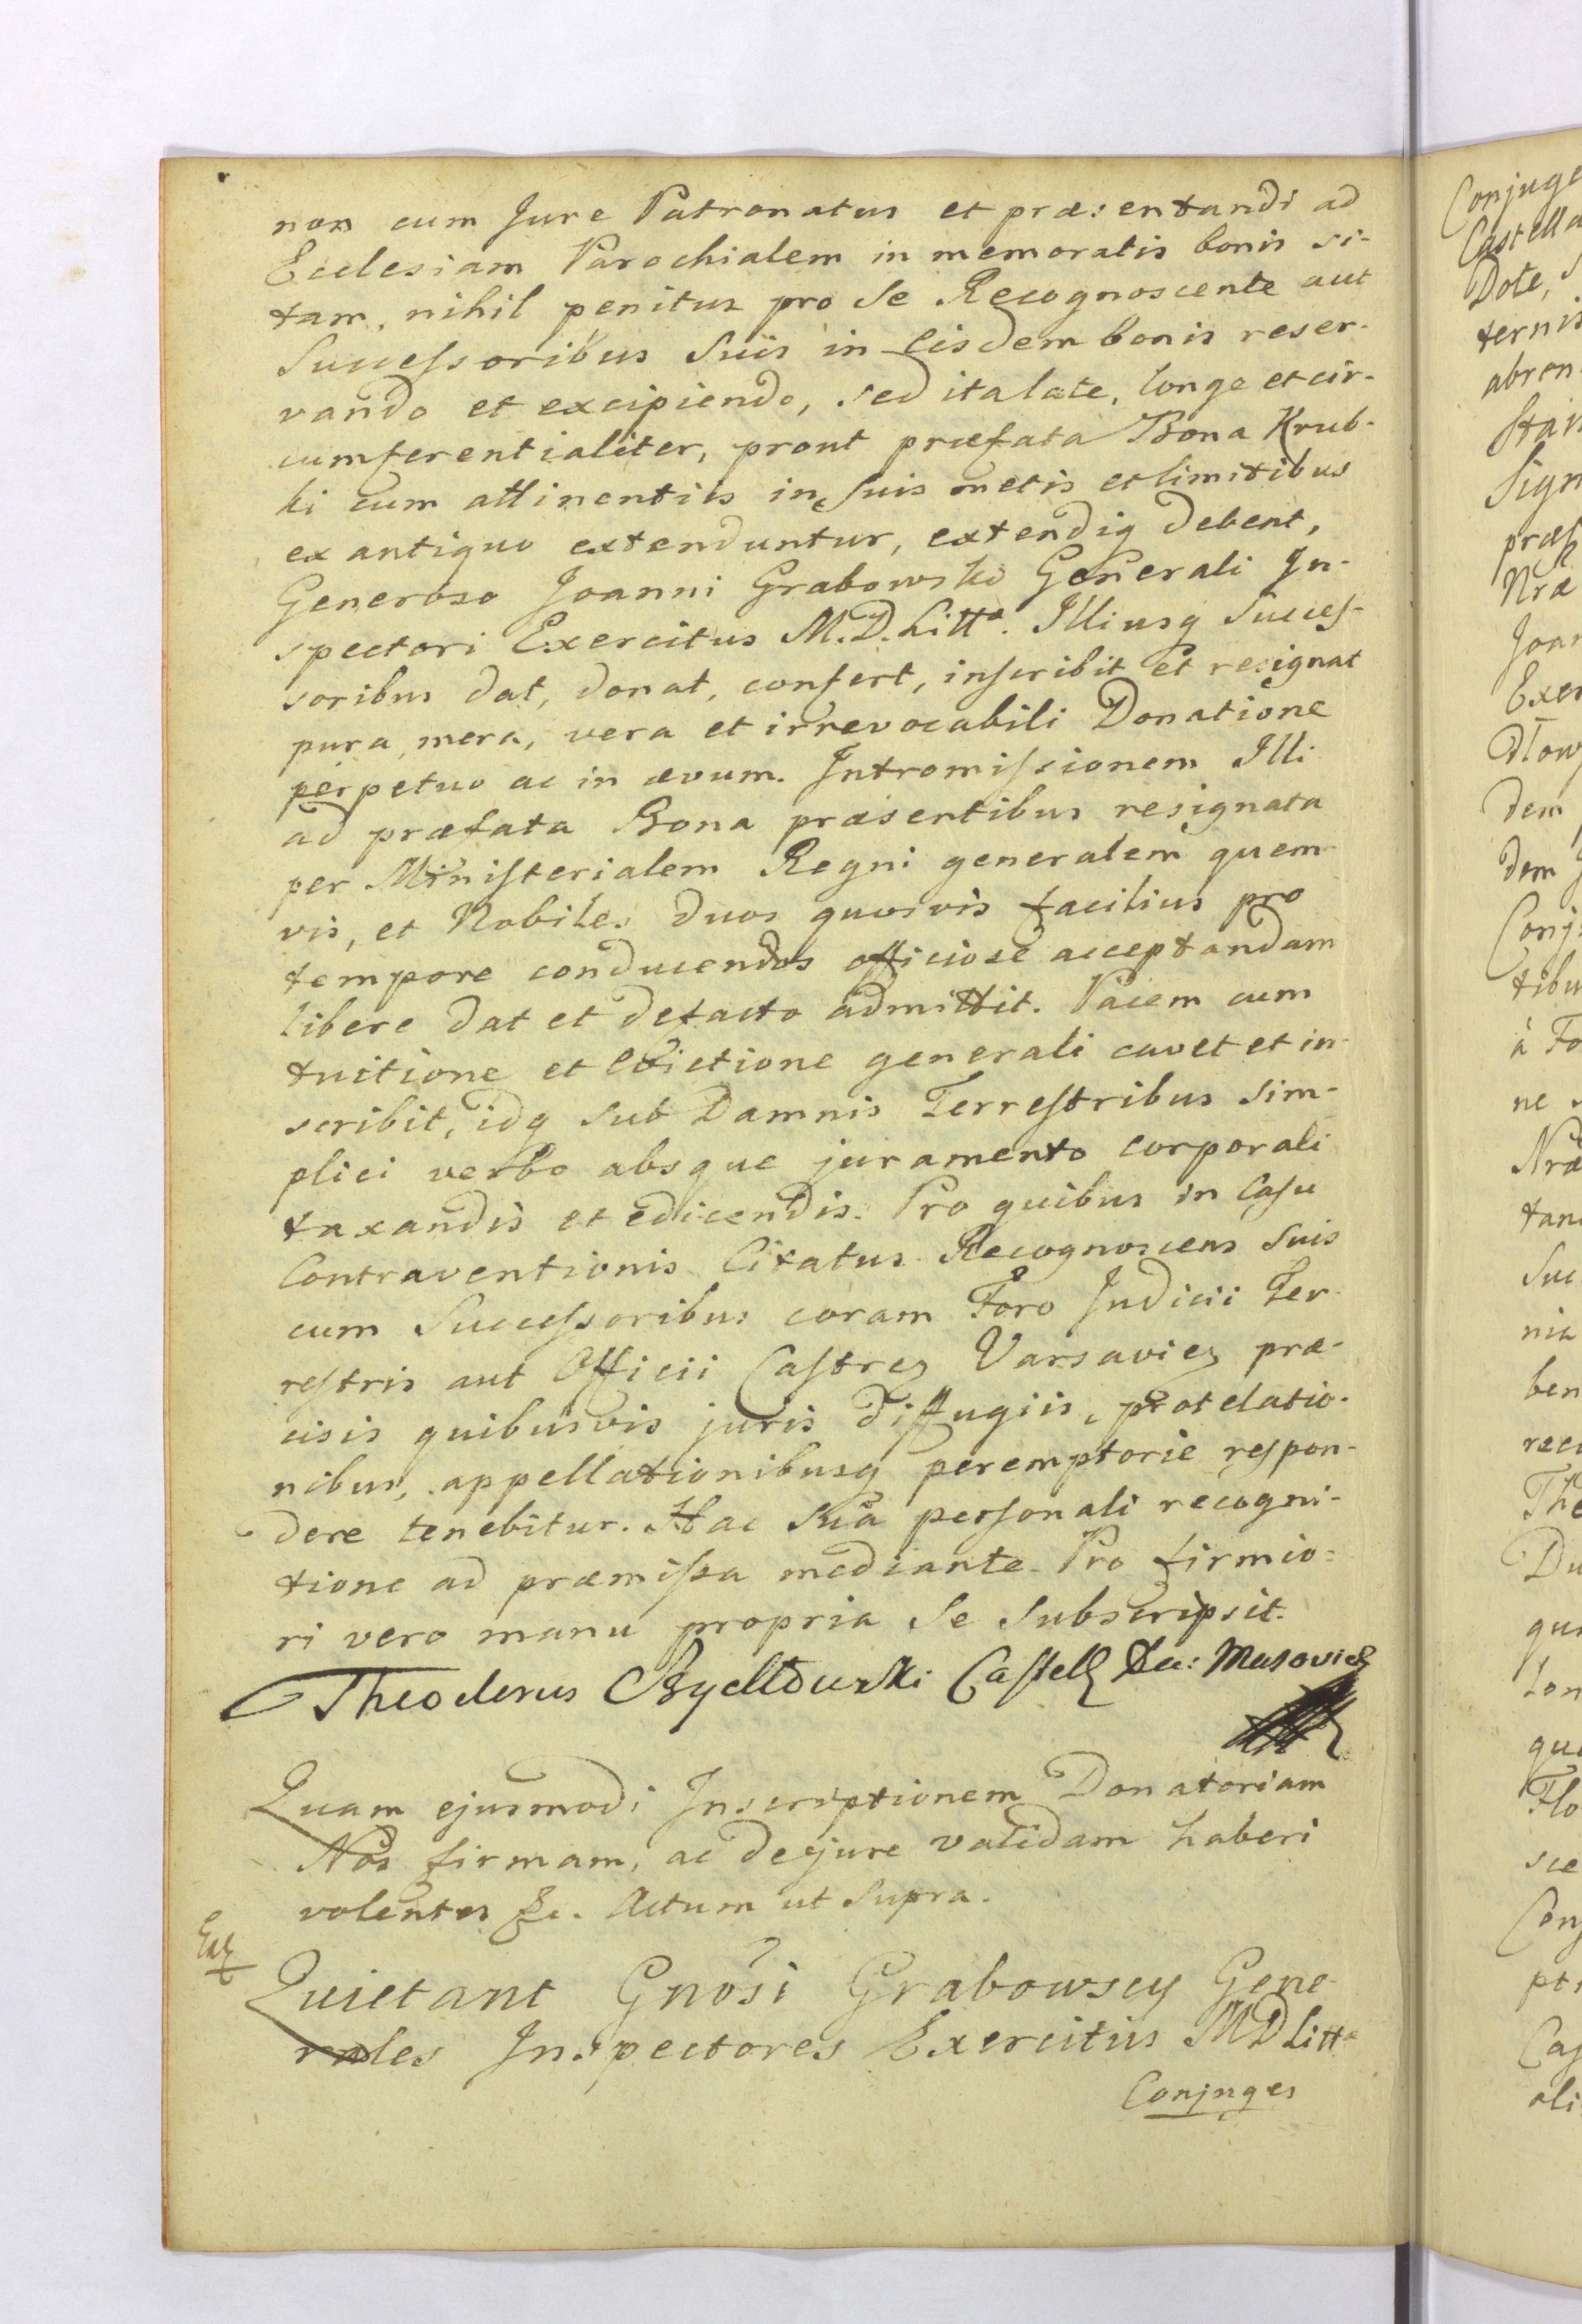 non cum Jure Patronatus et præsentandi ad
Ecclesiam Parochialem in memoratis bonis si-
tam, nihil penitus pro Se Recognoscente aut
Successoribus Suis in eisdem bonis reser-
vando et excipiendo, sed ita late, longe et cir-
cumferentialiter, prout præfata Bona Krub-
ki cum attinentiis in Suis metis et limitibus
ex antiquo extenduntur, extendiq debent,
Generoso Joanni Grabowski Generali In-
spectori Exercitus M. D. Litt. Illiusq Succes-
soribus dat, donat, confert, inscribit et resignat
pura, mera, vera et irrevocabili Donatione
perpetuo ac in ævum. Intromissionem Illi
ad præfata Bona præsentibus resignata
per Ministerialem Regni generalem quem-
vis, et Nobiles duos quosvis facilius pro
tempore conducendos officiose acceptandam
libere dat et defacto admittit. Pacem cum
tuitione et evictione generali cavet et in-
scribit, idq Sub Damnis Terrestribus sim-
plici verbo absque juramento corporali
taxandis et edicendis. Pro quibus in Casu
Contraventionis Citatus Recognoscens Suis
cum Successoribus coram Foro Judicii Ter-
restris aut Officii Castren Varsavien præ-
cisis quibusvis juris diffugiis, protelatio-
nibus, appellationibusq peremptorie respon-
dere tenebitur. Hac Suâ personali recogni-
tione ad præmissa mediante. Pro firmio-
ri vero manu propria Se Subscripsit.
Theodorus Szydłowski Castell Masovie
Quam ejusmodi Inscriptionem Donatoriam
Nos firmam, ac de jure validam haberi
volentes &c. Actum ut Supra.
Quietant Gnosi Grabowscy Gene-
rales Inspectores Exercitus M D Litt
Conjuges
Conjuge
Castella
Dote,
ternis
abren
Sign
præf
Nræ
Joan
Exer
dem
dem
Conj
tibu
à Fo
ne
Nræ
tan
Suc
nia
ben
reco
The
Du
qu
ton
qu
Flo
sce
Conj
pt
Cas
ali